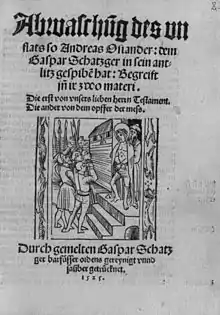 Abwaschug des vn
flats so Andreas Osiander: dem
Gaspar Schatzger in sein ant-
litz gespibē hat: Begreift
jn̄ ir zwo materi.
Die erst von vnsers lieben herrn Testament.
Die ander von dem opffer der mess.
Durch gemelten Gaspar Schatz
ger barfüsser ordens gereynigt vnnd
sauber getrücknet.
1525.